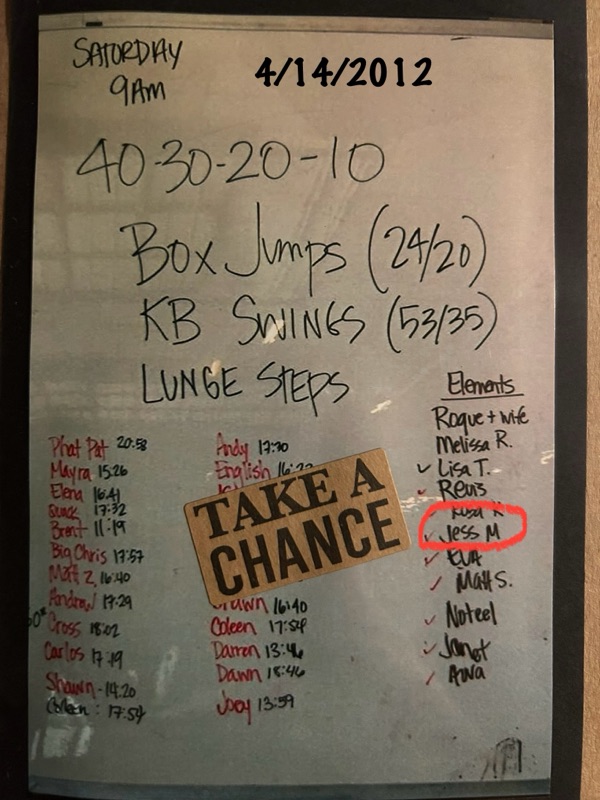 SATURDAY
9AM
4/14/2012
40-30-20-10
BOX JUMPS (24/20)
KB SWINGS (53/35)
LUNGE STEPS
Phat Pat 20:58
Mayra 15:26
Elena 16:41
17:32
Brent 11:19
Big Chris 17:57
Matt Z. 16:40
Andrew 17:29
Cross 18:02
Carlos 17:19
Shawn - 14:20
Colleen : 17:54
Andy
English
TAKE A
CHANCE
16:40
Coleen 17:54
Darren 13:46
Dawn 18:46
Joey 13:59
Elements
Roque + wife
Melissa R.
Lisa T.
Revis
Jess M
EVA
Matt S.
Noteel
Janet
Awa